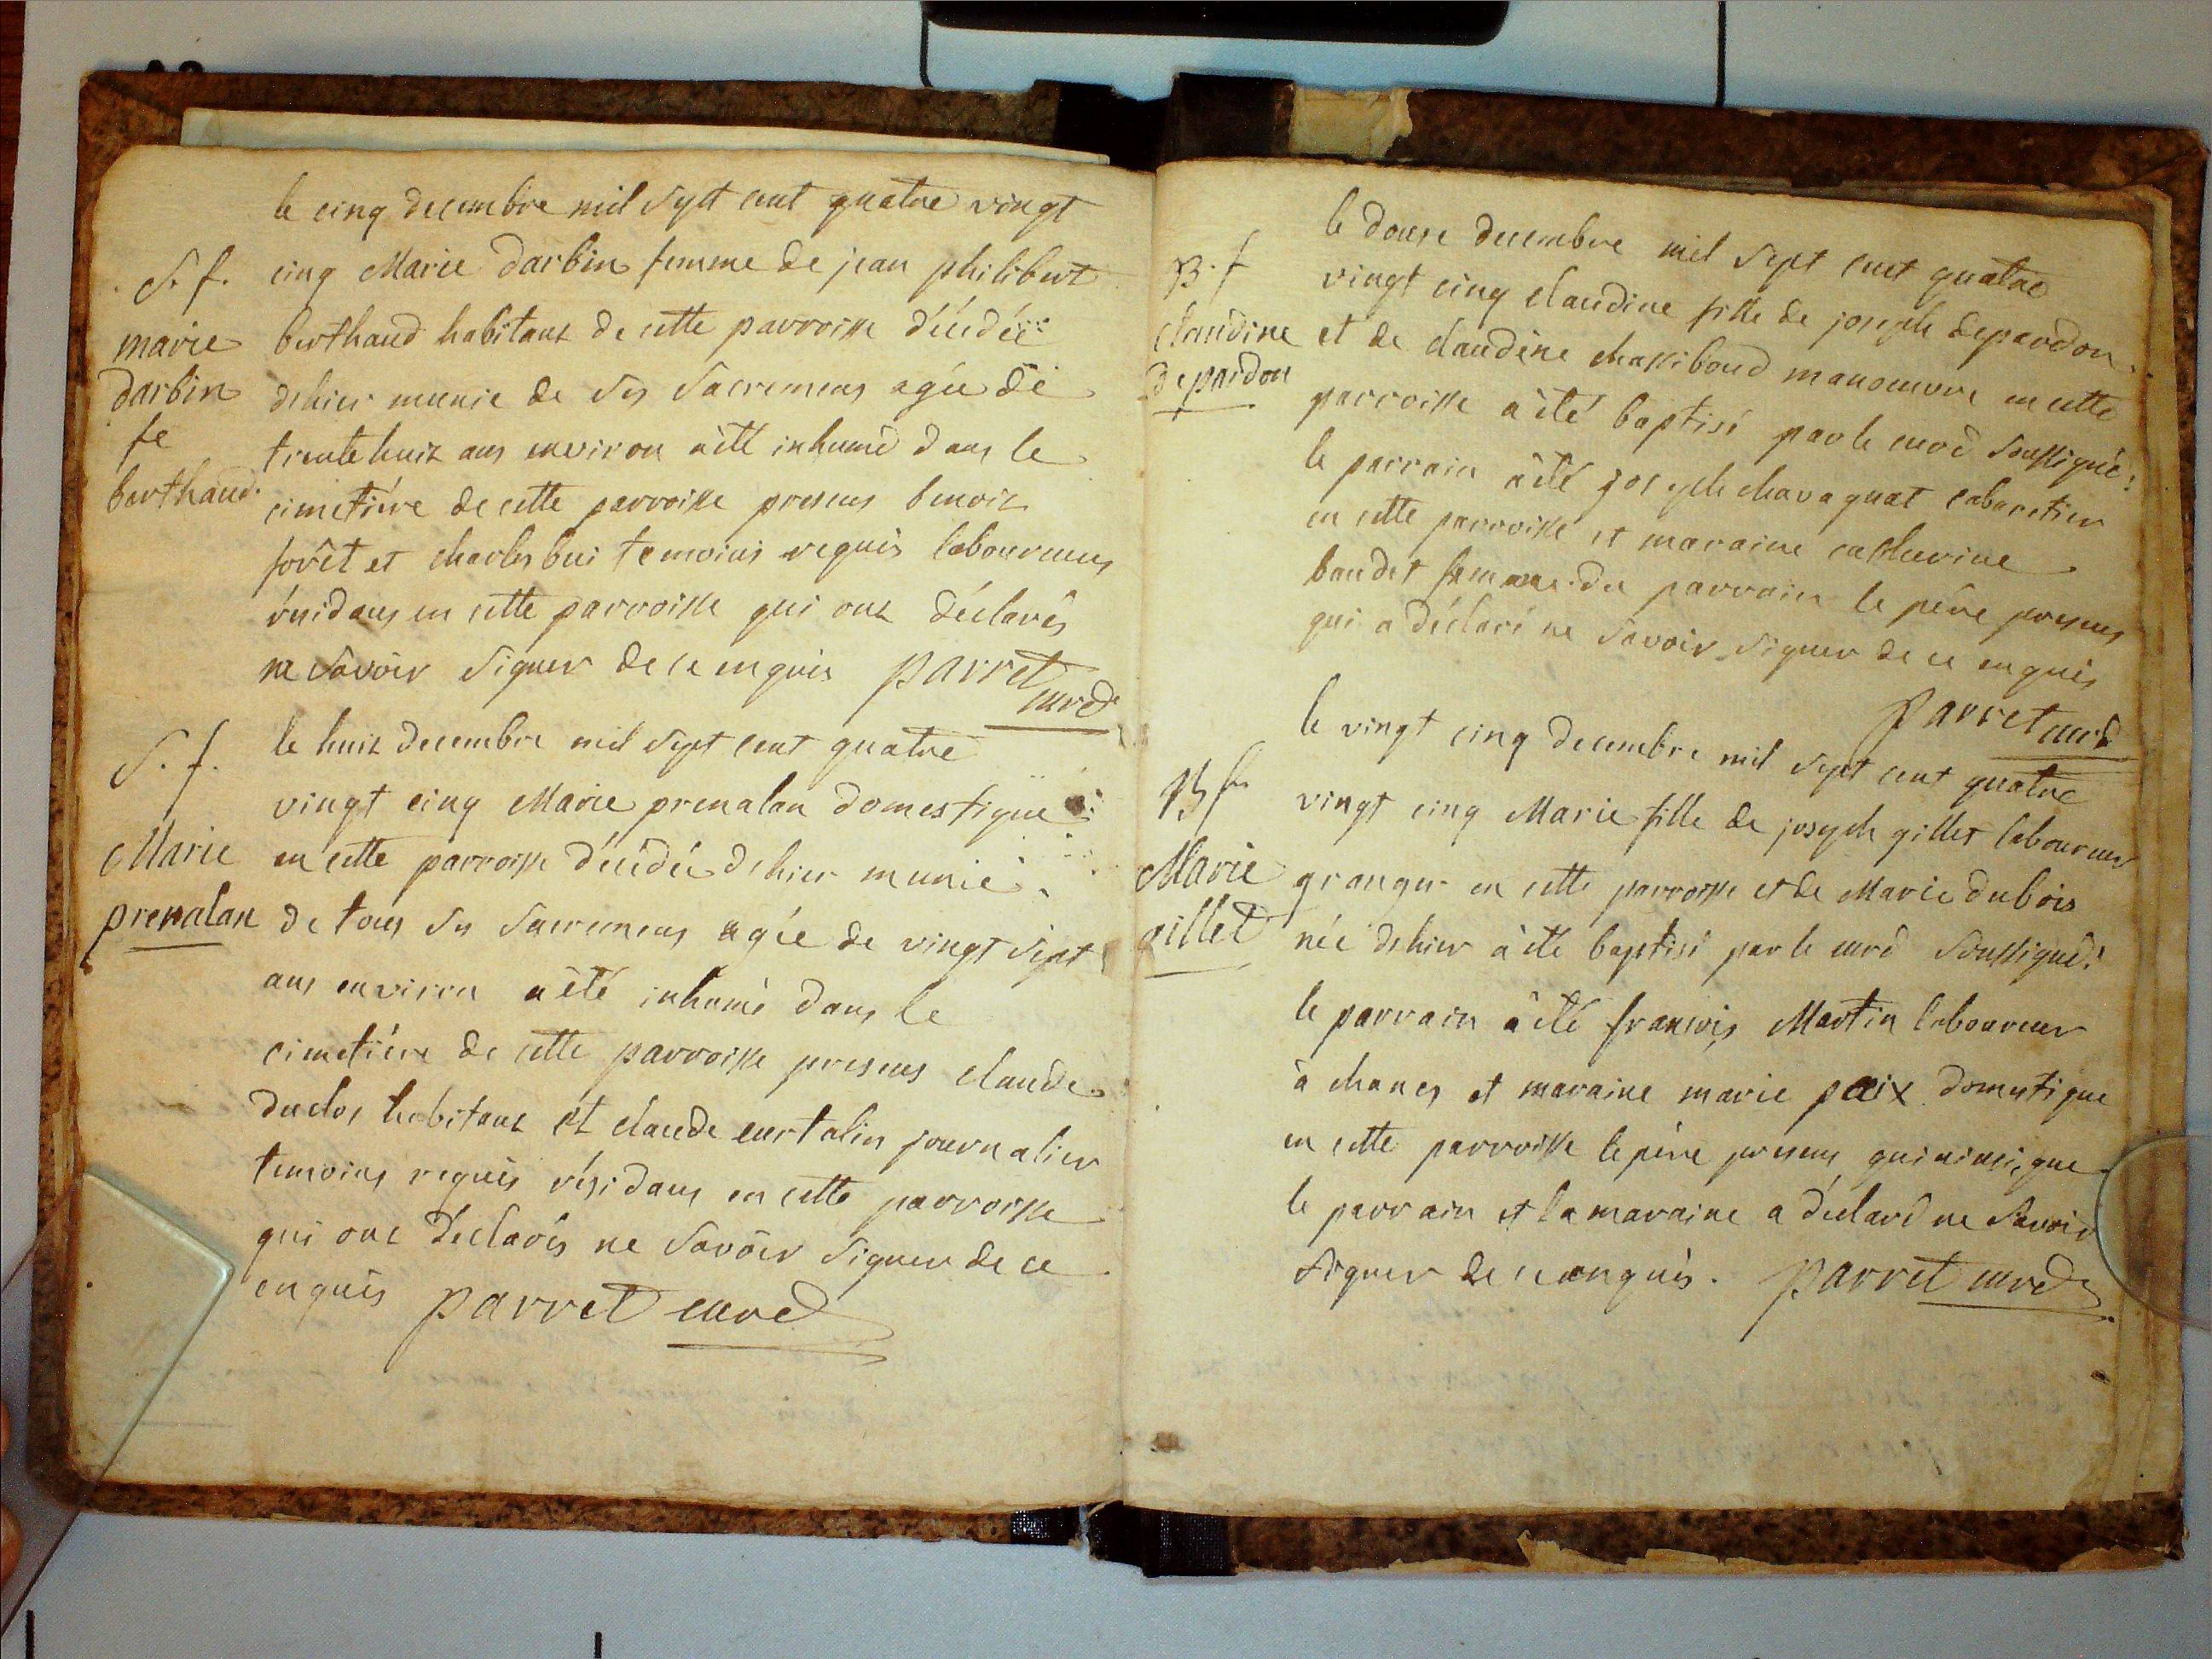 le cinq decembre mil sept cent quatre vingt
S. f.
cinq Marie darbin femme de jean philibert
marie
berthaud habitant de cette parroisse décédée
darbin
dehier munie de ses Sacremens agée de
fe
trente huit ans environ a été inhumé dans le
berthaud.
cimetiére de cette parroisse presens benoit
forêt et charles bui temoins requis laboureurs
résidans en cette parroisse qui ont déclarés
ne savoir signer de ce enquis parret
curé
S. f.
le huit decembre mil sept cent quatre
vingt cinq Marie prenalan domestique
Marie
en cette parroisse décédée dehier munie
prenalan
de tous ses Sacremens agée de vingt sept
ans environ a été inhumé dans le
cimetiére de cette parroisse presens claude
duclos habitant et claude curtalin journalier
temoins requis résidans en cette parroisse
qui ont déclarés ne savoir signer de ce
enquis parret curé
le douse decembre mil sept cent quatre
B. f
vingt cinq claudine fille de joseph depardon
claudine
et de claudine chassiboud manoeuvre en cette
depardon
parroisse a été baptisé par le curé soussigné:
le parrain a été joseph chavagnat cabaretier
en cette parroisse et maraine catherine
baudet femme du parrain le pére presens
qui a déclaré ne savoir signer de ce enquis
parret curé
le vingt cinq decembre mil sept cent quatre
B f
vingt cinq Marie fille de joseph gillet laboureur
Marie
granger en cette parroisse et de Marie dubois
gillet
née dehier a été baptisé par le curé soussigné:
le parrain a été françois Martin laboureur
à chanes et maraine marie paix domestique
en cette parroisse le pére presens qui ainsi que
le parrain et la maraine a déclaré ne savoir
signer de ce enquis. parret curé